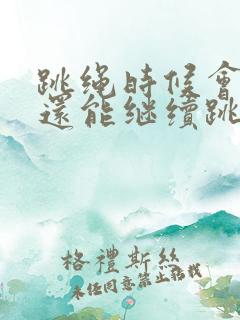 跳绳時候會
還能继續跳
格禮斯絲
未经同意禁止転載